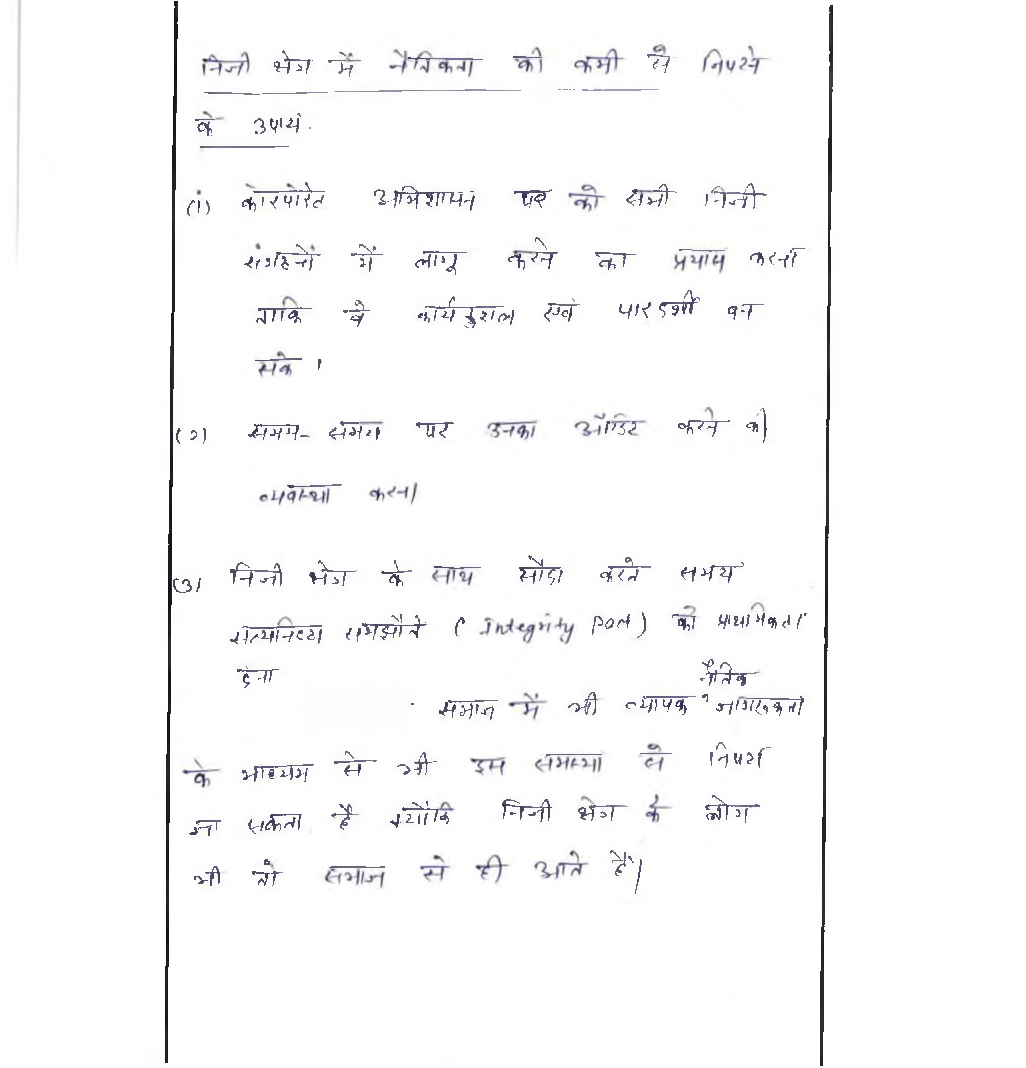 निजी क्षेत्र में नैतिकता की कमी से निपटने
के उपाय.
(1) कोरपोरेट अभिशासन को सभी निजी
संगठनों में लागू करने का प्रयास करना
ताकि वे कार्यकुशल एवं पारदर्शी बन
सके।
(2) समय-समय पर उनका ऑडिट करने की
व्यवस्था करना
(3) निजी क्षेत्र के साथ सौदा करते समय
सत्यनिष्ठा समझौते (Integrity Pact) को प्राथमिकता
देना
समाज में भी व्यापक नैतिक जागरूकता
के माध्यम से भी इस समस्या से निपटा
जा सकता है क्योंकि निजी क्षेत्र के लोग
भी तो समाज से ही आते हैं।